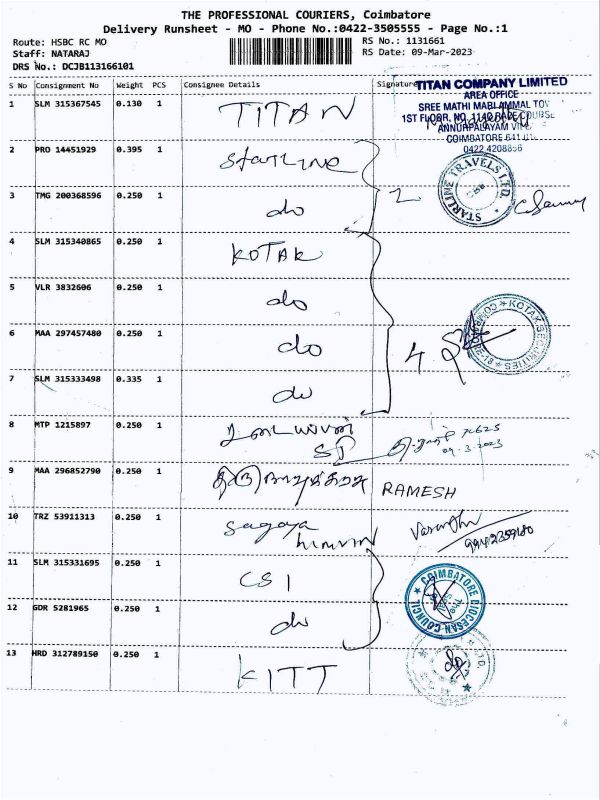 THE PROFESSIONAL COURIERS, Coimbatore
Delivery Runsheet - MO - Phone No.:0422-3505555 - Page No.:1
Route: HSBC RC MO
RS No.: 1131661
Staff: NATARAJ
RS Date: 09-Mar-2023
DRS No.: DCJB113166101
S No Consignment No Weight PCS Consignee Details Signature
TITAN COMPANY LIMITED
AREA OFFICE
SREE MATHI MABLAMMAL
1ST FLOOR, NO. 1140 RACE COURSE
COIMBATORE
0422 4208856
1 SLM 315367545 0.130 1 TITAN
2 PRO 14451929 0.395 1 STARLINE
STARLINE TRAVELS LTD.
CBE
3 TMG 200368596 0.250 1 do
2
4 SLM 315340865 0.250 1 KOTAK
5 VLR 3832606 0.250 1 do
KOTAK SECURITIES
6 MAA 297457480 0.250 1 do
4
7 SLM 315333498 0.335 1 do
8 MTP 1215897 0.250 1 உடையவன்
09.3.2023
9 MAA 296852790 0.250 1 திருநாவுக்கரசு RAMESH
10 TRZ 53911313 0.250 1 Sagaya
Vasanthi
11 SLM 315331695 0.250 1 CSI
COIMBATORE DIOCESAN COUNCIL
12 GDR 5281965 0.250 1 do
13 HRD 312789150 0.250 1 KITT
do